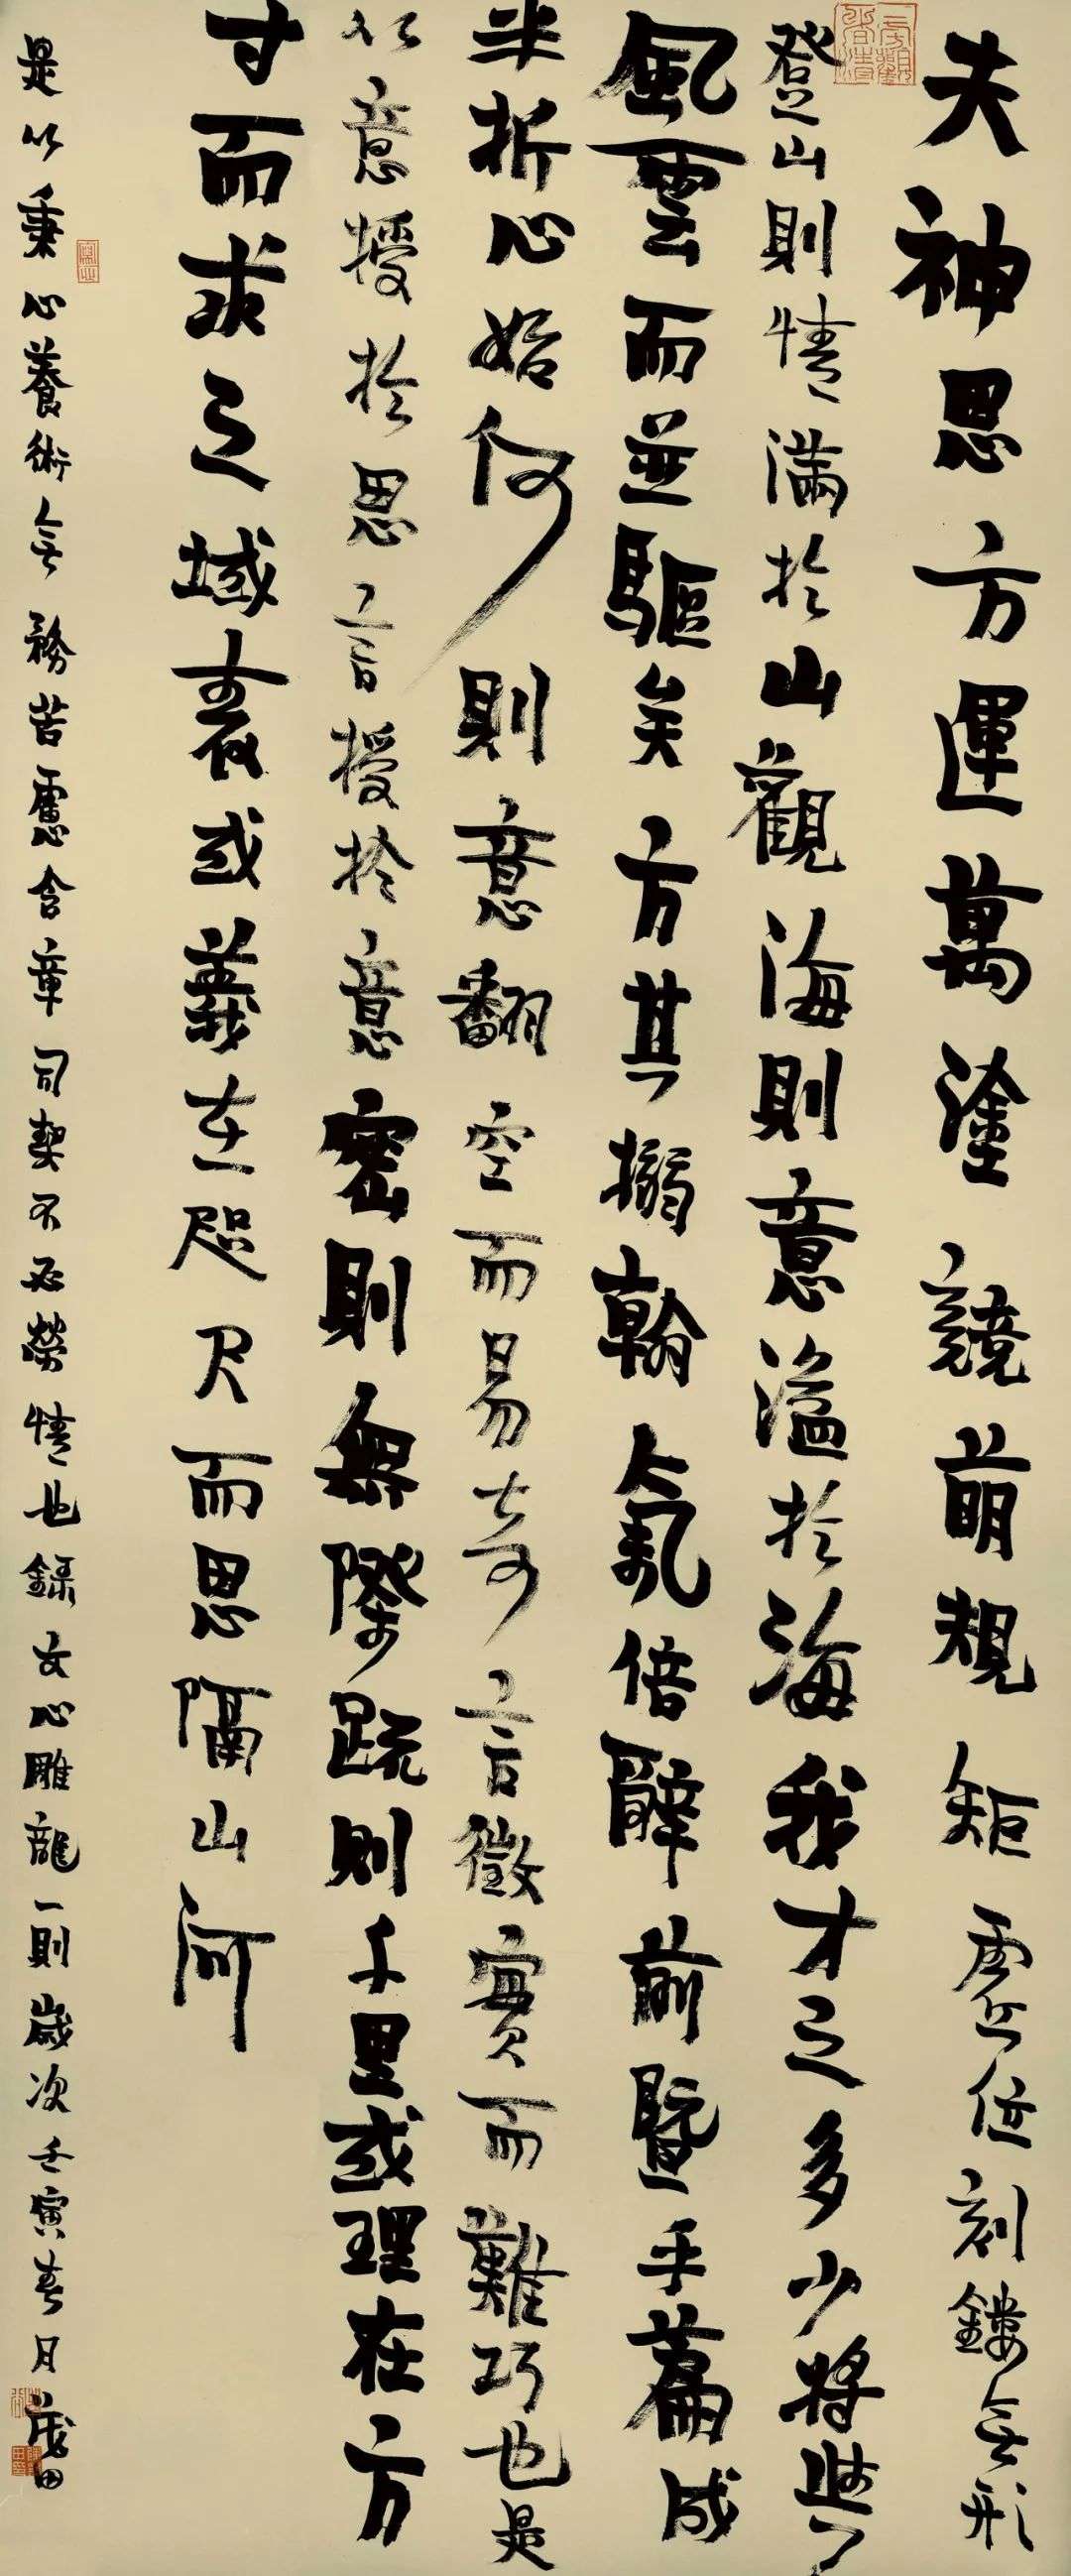 夫神思方運萬塗競萌規矩虛位刻鏤无形
登山則情滿於山觀海則意溢於海我才之多少將與
風雲而並驅矣方其搦翰氣倍辭前暨乎篇成
半折心始何則意翻空而易奇言徵實而難巧也是
以意授於思言授於意密則無際疏則千里或理在方
寸而求之域表或義在咫尺而思隔山河
是以秉心養術无務苦慮含章司契不必勞情也錄文心雕龍一則歲次壬寅春月茂田